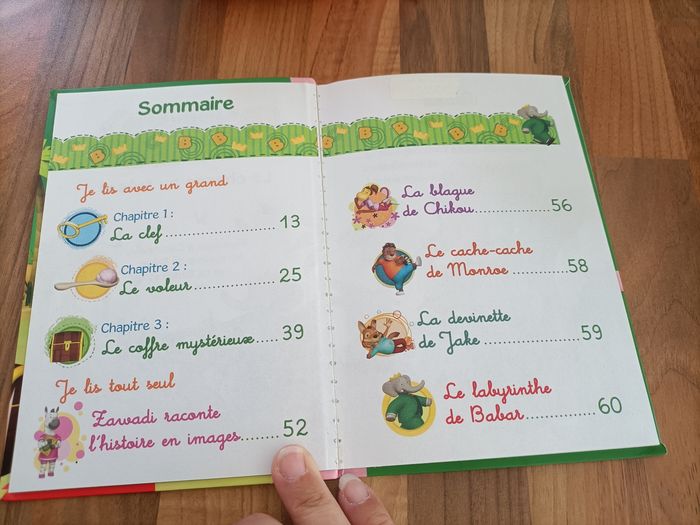 Sommaire
Je lis avec un grand
Chapitre 1 :
La clef.......................... 13
Chapitre 2 :
Le voleur.................... 25
Chapitre 3 :
Le coffre mystérieux..... 39
Je lis tout seul
Zawadi raconte
l'histoire en images........ 52
La blague
de Chikou.................. 56
Le cache-cache
de Monroe............. 58
La devinette
de Jake...................... 59
Le labyrinthe
de Babar................ 60